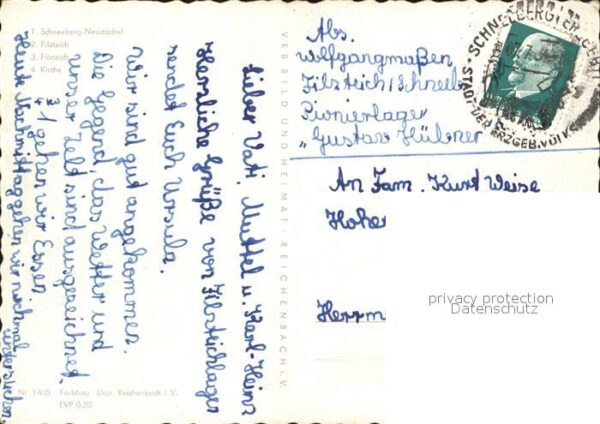 1. Schneeberg-Neustädtel
2. Filzteich
3. Filzteich
4. Kirche
Lieber Vati, Muttel u. Karl-Heinz
Herzliche Grüße von Filzteichlager
sendet Euch Ursula.
Wir sind gut angekommen.
Die Gegend, das Wetter und
unser Zelt sind ausgezeichnet.
1 gehen wir Essen.
Heute Nachmittag gehen wir nochmal
Nr. 1405 Farbfoto Darr Reichenbach i. V.
EVP 0,20
VEB BILD UND HEIMAT · REICHENBACH i. V.
Abs.
Filzteich / Schneeb.
Pionierlager
„Gustav Hübner
SCHNEEBERG
STADT DER ERZGEB. VOLKS
An Fam. Kurt Weise
Hoher
Herrm
privacy protection
Datenschutz